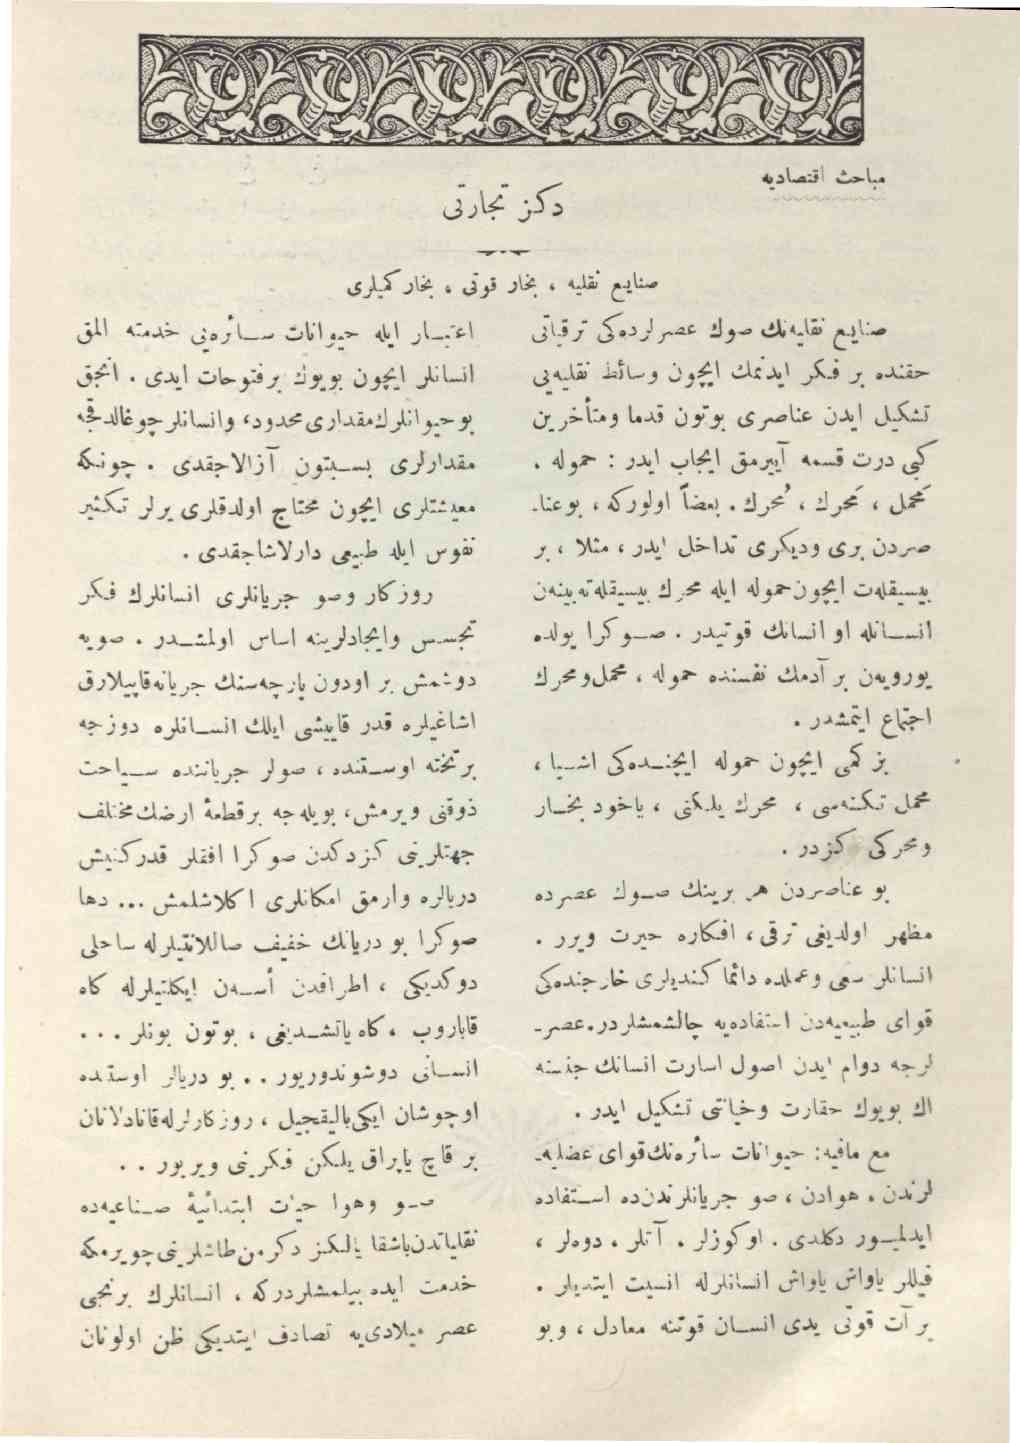 مباحث اقتصادیه
دكز تجارتی
صنایع نقلیه ، بخار قوتی ، بخار كمیلری
صنایع نقلیه‌نك صوك عصرلرده‌كی ترقیاتی
حقنده بر فكر ایدنمك ایچون وسائط نقلیه‌یی
تشكیل ایدن عناصری بوتون قدما ومتأخرین
كبی درت قسمه آییرمق ایجاب ایدر : حموله ،
مَحمل ، مَحرك ، مُحرك . بعضاً اولوركه ، بوعنا-
صردن بری ودیكری تداخل ایدر ، مثلا ، بر
بیسیقله‌ت ایچون حموله ایله محرك بیسیقله‌ته بینه‌ن
انسانله او انسانك قوتیدر . صوكرا یولده
یورویه‌ن بر آدمك نفسنده حموله ، محمل ومحرك
اجتماع ایتمشدر .
بز كمی ایچون حموله ایچنده‌كی اشیا ،
محمل تكنه‌سی ، محرك یلكنی ، یاخود بخار
ومحركی كزدر .
بو عناصردن هر برینك صوك عصرده
مظهر اولدیغی ترقی ، افكاره حیرت ویرر .
انسانلر سعی وعملده دائما كندیلری خارجنده‌كی
قوای طبیعیه‌دن استفاده‌یه چالشمشلردر . عصر-
لرجه دوام ایدن اصول اسارت انسانك جنسنه
اك بویوك حقارت وخیانتی تشكیل ایدر .
مع مافیه : حیوانات سائره‌نك قوای عضلیه-
لرندن ، هوادن ، صو جریانلرندن‌ده استفاده
ایدلمیور دكلدی . اوكوزلر ، آتلر ، دوه‌لر ،
فیللر یاواش یاواش انسانلرله انسیت ایتدیلر .
بر آت قوتی یدی انسان قوتنه معادل ، وبو
اعتبار ایله حیوانات سائره‌یی خدمته المق
انسانلر ایچون بویوك برفتوحات ایدی . انجق
بوحیوانلرك مقداری محدود ، وانسانلر چوغالدقجه
مقدارلری بسبتون آزالاجقدی . چونكه
معیشتلری ایچون محتاج اولدقلری یرلر تكثیر
نفوس ایله طبیعی دارلاشاجقدی .
روزكار وصو جریانلری انسانلرك فكر
تجسس وایجادلرینه اساس اولمشدر . صویه
دوشمش بر اودون پارچه‌سنك جریانه قاپیلارق
اشاغیلره قدر قاییشی ایلك انسانلره دوزجه
برتخته اوستنده ، صولر جریاننده سیاحت
ذوقنی ویرمش ، بویله‌جه برقطعهٔ ارضك مختلف
جهتلرینی كزدكدن صوكرا افقلر قدركنیش
دریالره وارمق امكانلری اكلاشلمش ... دها
صوكرا بو دریانك خفیف صاللانتیلرله ساحلی
دوكدیكی ، اطرافدن أسه‌ن ایكلتیلرله كاه
قاباروب ، كاه یاتشدیغی ، بوتون بونلر ...
انسانی دوشوندوریور . . بو دریالر اوستنده
اوچوشان ایكی بالیقجیل ، روزكارلرله قانادلانان
بر قاچ یاپراق یلكن فكرینی ویریور . .
صو وهوا حیات ابتدائیهٔ صناعیه‌ده
نقلیاتدن باشقا یالكز دكرمن طاشلرینی چویرمكه
خدمت ایده بیلمشلردركه ، انسانلرك برنجی
عصر میلادی‌یه تصادف ایتدیكی ظن اولونان